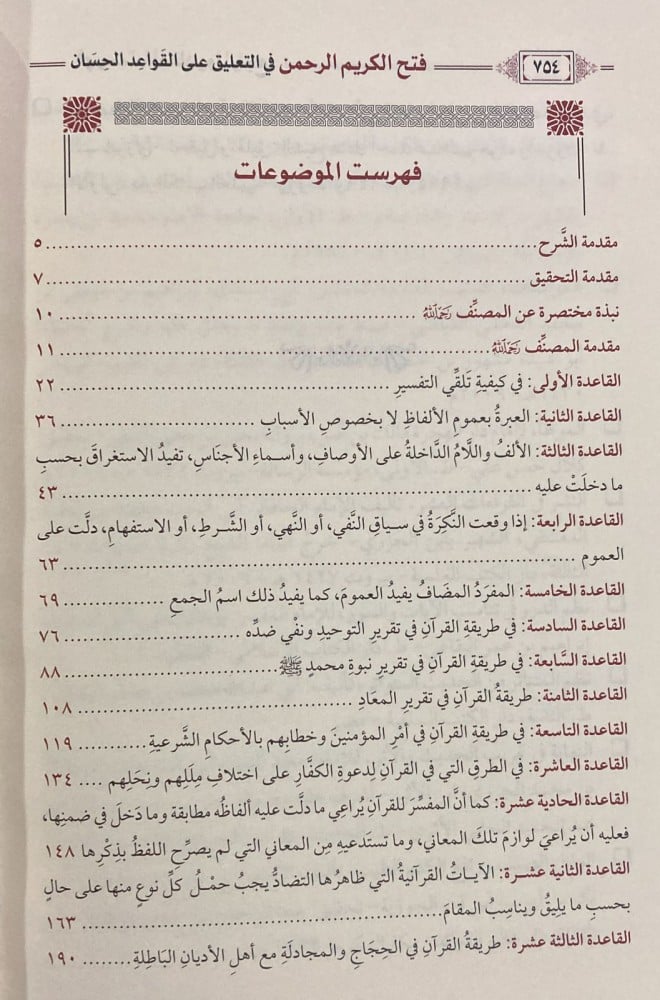 ٧٥٤ فتح الكريم الرحمن في التعليق على القَواعِد الحِسَان
فهرست الموضوعات
مقدمة الشَّرح ................ ٥
مقدمة التحقيق ................ ٧
نبذة مختصرة عن المصنِّف رَحِمَهُ اللَّهُ ................ ١٠
مقدمة المصنِّف رَحِمَهُ اللَّهُ ................ ١١
القاعدة الأولى: في كيفيةِ تَلقِّي التفسيرِ ................ ٢٢
القاعدة الثانية: العبرةُ بعمومِ الألفاظِ لا بخصوصِ الأسبابِ ................ ٣٦
القاعدة الثالثة: الألفُ واللَّامُ الدَّاخلةُ على الأوصافِ، وأسماءِ الأجناسِ، تفيدُ الاستغراقَ بحسبِ
ما دخلَتْ عليه ................ ٤٣
القاعدة الرابعة: إذا وقعت النَّكِرَةُ في سياقِ النَّفي، أو النَّهي، أو الشَّرطِ، أو الاستفهامِ، دلَّت على
العموم ................ ٦٣
القاعدة الخامسة: المفرَدُ المضَافُ يفيدُ العمومَ، كما يفيدُ ذلك اسمُ الجمعِ ................ ٦٩
القاعدة السادسة: في طريقةِ القرآنِ في تقريرِ التوحيدِ ونفْي ضدِّه ................ ٧٦
القاعدة السَّابعة: في طريقةِ القرآنِ في تقريرِ نبوةِ محمدٍ ﷺ ................ ٨٨
القاعدة الثامنة: طريقةُ القرآنِ في تقريرِ المعَادِ ................ ١٠٨
القاعدة التاسعة: في طريقةِ القرآنِ في أمْرِ المؤمنينَ وخطابِهم بالأحكامِ الشَّرعيةِ ........... ١١٩
القاعدة العاشرة: في الطرقِ التي في القرآنِ لِدعوةِ الكفَّارِ على اختلافِ مِلَلِهم ونِحَلِهم .... ١٣٤
القاعدة الحادية عشرة: كما أنَّ المفسِّرَ للقرآنِ يُراعِي ما دلَّت عليه ألفاظُه مطابقة وما دَخلَ في ضمنِها،
فعليه أن يُراعيَ لوازمَ تلكَ المعاني، وما تستَدعيهِ مِن المعاني التي لم يصرِّح اللفظُ بِذِكْرِها ١٤٨
القاعدة الثانية عشـرة: الآيـاتُ القرآنيةُ التي ظاهرُها التضادُّ يجبُ حمْـلُ كلِّ نوعٍ منها على حالٍ
بحسبِ ما يلِيقُ ويناسِبُ المقامَ ................ ١٦٣
القاعدة الثالثة عشرة: طريقةُ القرآنِ في الحِجَاجِ والمجادلَةِ مع أهلِ الأديانِ البَاطِلةِ ........ ١٩٠